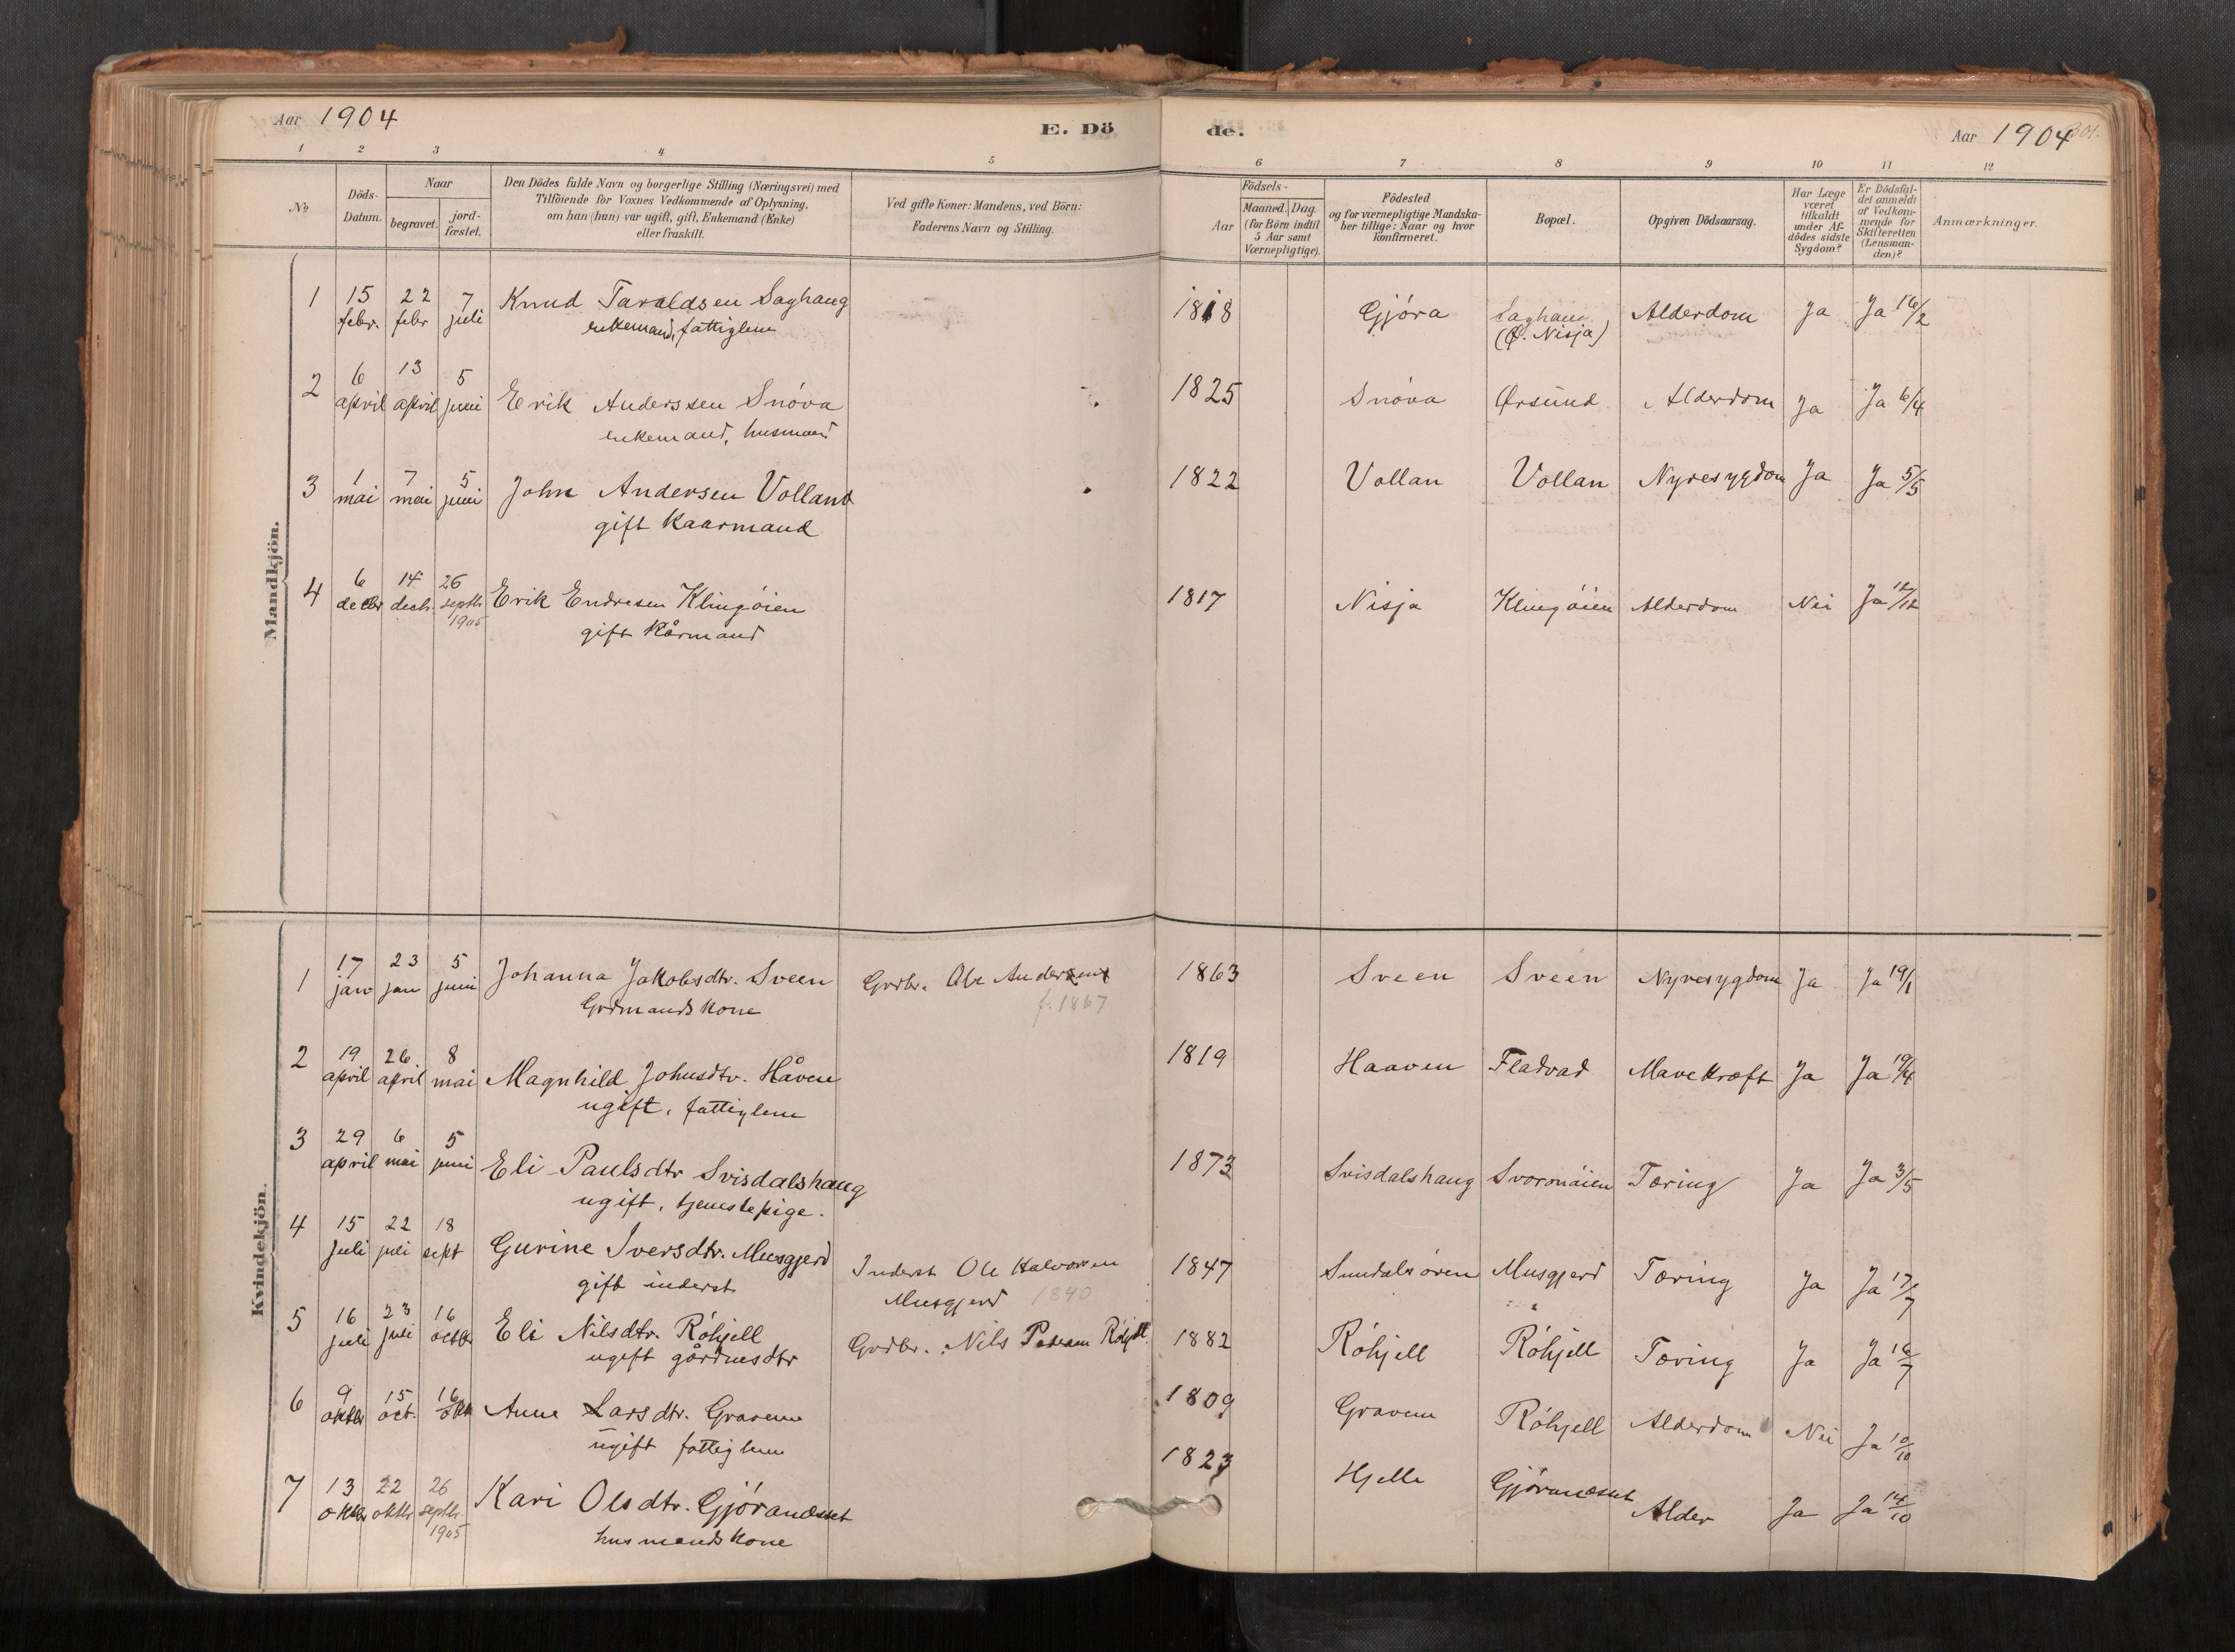 Aar 1904
E. Dö
de.
Aar 1904
301.
1 2 3 4 5 6 7 8 9 10 11 12
No
Döds-Datum.
Naar
begravet.
jord-fæstet.
Den Dödes fulde Navn og borgerlige Stilling (Næringsvei) med
Tilföiende for Voxnes Vedkommende af Oplysning,
om han (hun) var ugift, gift, Enkemand (Enke)
eller fraskilt.
Ved gifte Koner: Mandens, ved Börn:
Faderens Navn og Stilling.
Födsels-
Aar
Maaned. Dag.
(for Börn indtil
5 Aar samt
Værnepligtige).
Födested
og for værnepligtige Mandska-
ber tillige: Naar og hvor
konfirmeret.
Bopæl.
Opgiven Dödsaarsag.
Har Læge
været
tilkaldt
under Af-
dödes sidste
Sygdom?
Er Dödsfal-
det anmeldt
af Vedkom-
mende for
Skifteretten
(Lensman-
den)?
Anmærkninger.
Mandkjön.
1 15 febr. 22 febr 7 juli Knud Taraldsen Saghaug 1818 Gjóra Saghaug (Ø. Nisja) Alderdom Ja Ja 16/2
enkemand, fattiglem
2 6 april 13 april 5 juni Erik Anderssen Snóva 1825 Snóva Ørsund Alderdom Ja Ja 6/4
enkemand, husmand
3 1 mai 7 mai 5 juni John Andersen Volland 1822 Vollan Vollan Nyresygdom Ja Ja 5/5
gift Kaarmand
4 6 decbr 14 decb. 26 septb 1905 Erik Endresen Klingóien 1817 Nisja Klingóien Alderdom Nei Ja 12/12
gift Kårmand
Kvindekjön.
1 17 jan 23 jan 5 juni Johanna Jakobsdtr. Sveen Grdbr. Ole Andersen 1863 Sveen Sveen Nyresygdom Ja Ja 19/1
Grdmands kone f. 1867
2 19 april 26 april 8 mai Magnhild Johnsdtr. Håven 1819 Haaven Fladvad Mavekræft Ja Ja 19/4
ugift, fattiglem
3 29 april 6 mai 5 juni Eli Paulsdtr Svisdalshaug 1873 Svisdalshaug Svoronóien Tæring Ja Ja 3/5
ugift, tjenstepige.
4 15 juli 22 juli 18 sept Gurine Iversdtr. Musgjerd Inderst Ole Halvorsen 1847 Sundalsóren Musgjerd Tæring Ja Ja 17/7
gift inderst Musgjerd 1840
5 16 juli 23 juli 16 octbr Eli Nilsdtr. Róhjell Grdbr. Nils Petersen Róhjell 1882 Róhjell Róhjell Tæring Ja Ja 18/7
ugift gårdmsdtr
6 9 oktbr 15 oct. 16 okt Anne Larsdtr. Gravem 1809 Gravem Róhjell Alderdom Nei Ja 10/10
ugift fattiglem
7 13 oktbr 22 oktbr 26 septbr. 1905 Kari Olsdtr. Gjórandsset 1823 Hjelle Gjórandsset Alder Ja Ja 14/10
husmandskone